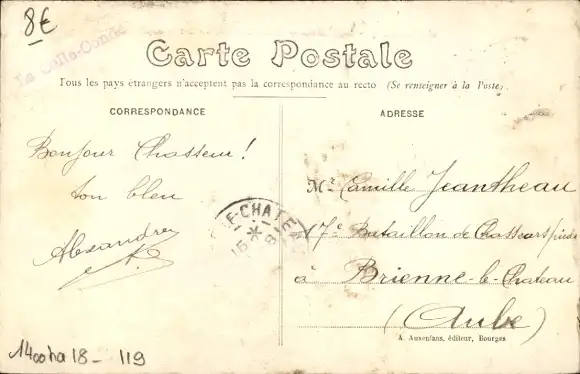 8€
La Celle-Condé
Carte Postale
Tous les pays étrangers n'acceptent pas la correspondance au recto (Se renseigner à la Poste).
CORRESPONDANCE
ADRESSE
Bonjour Chasseur!
ton bleu
Alexandre
Mr Camille Jeantheau
17e Bataillon de Chasseurs à pieds
à Brienne-le-Chateau
(Aube)
E-CHATE
16 * 8
A. Auxenfans, éditeur, Bourges
1400ha18 - 119